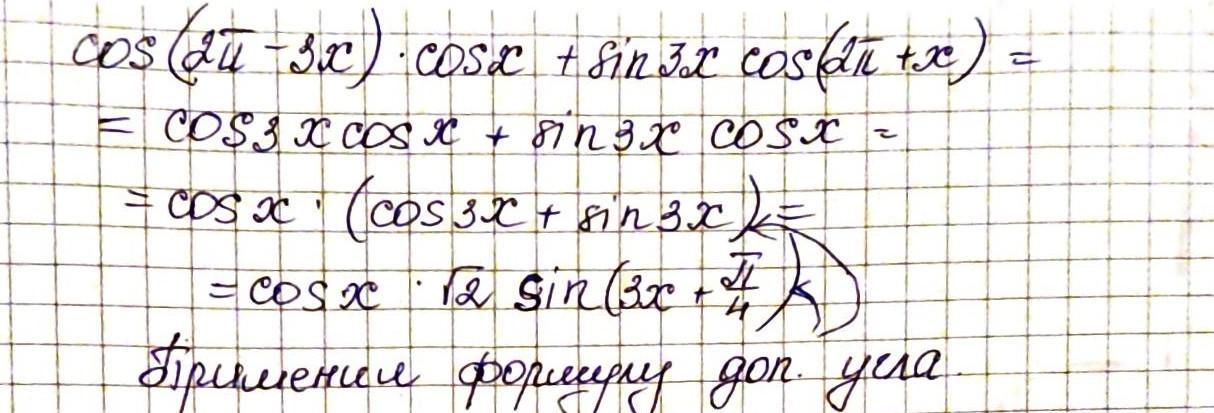 cos(2π - 3x) · cosx + sin3x cos(2π + x) =
= cos3x cosx + sin3x cosx =
= cosx · (cos3x + sin3x) =
= cosx · √2 sin(3x + π/4)
Применили формулу доп. угла.